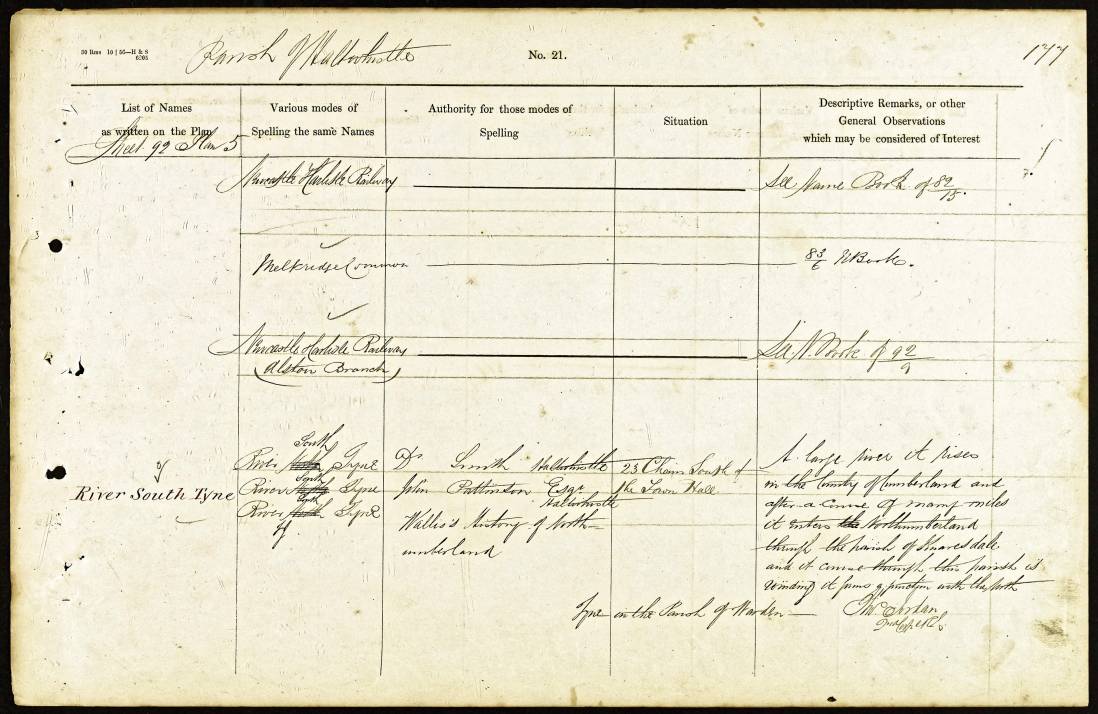 50 Rms 10 | 56—H & S
6205
Parish of Haltwhistle
No. 21.
177
List of Names
as written on the Plan
Various modes of
Spelling the same Names
Authority for those modes of
Spelling
Situation
Descriptive Remarks, or other
General Observations
which may be considered of Interest
Sheet 92 Plan 5
Newcastle & Carlisle Railway
See Name Book of 82/15.
Melkridge Common
83/6 N Book.
Newcastle & Carlisle Railway
(Alston Branch)
See N. Book of 92/9
River South Tyne
River South Tyne
River South Tyne
River South Tyne
Dr. Smith Haltwhistle
John Pattinson Esqr
Haltwhistle
Wallis's History of North-
umberland
23 Chains South of
the Town Hall
A large river it rises
in the County of Cumberland and
after a Course of many miles
it enters the Northumberland
through the parish of Knaresdale
and it course through this parish is
winding it forms a junction with the North
Tyne in the Parish of Warden
Jordan